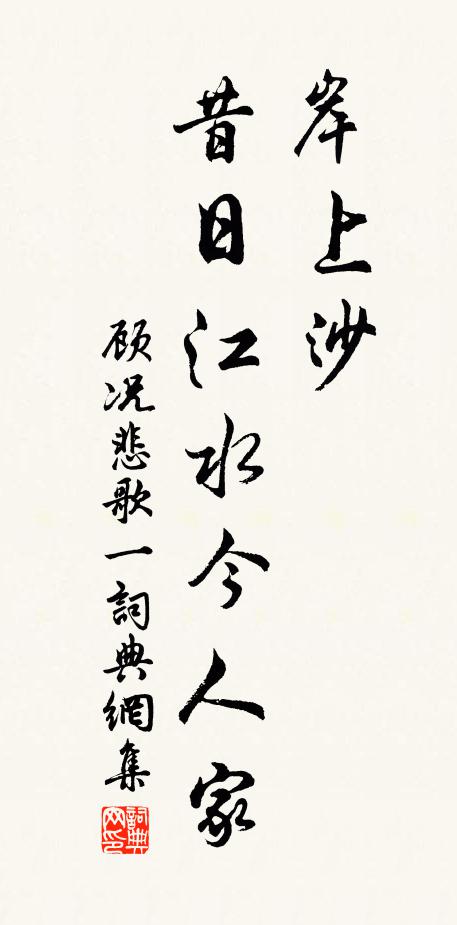 岸上沙
昔日江水今人家
顾况悲歌一詞典網集
詞典网印